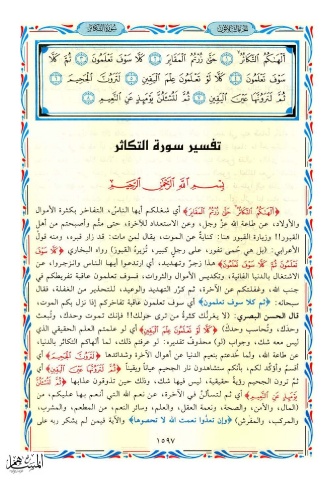 سورة التكاثر
أَلْهَىٰكُمُ ٱلتَّكَاثُرُ ۝ حَتَّىٰ زُرْتُمُ ٱلْمَقَابِرَ ۝ كَلَّا سَوْفَ تَعْلَمُونَ ۝ ثُمَّ كَلَّا
سَوْفَ تَعْلَمُونَ ۝ كَلَّا لَوْ تَعْلَمُونَ عِلْمَ ٱلْيَقِينِ ۝ لَتَرَوُنَّ ٱلْجَحِيمَ ۝
ثُمَّ لَتَرَوُنَّهَا عَيْنَ ٱلْيَقِينِ ۝ ثُمَّ لَتُسْـَٔلُنَّ يَوْمَئِذٍ عَنِ ٱلنَّعِيمِ ۝
تفسير سورة التكاثر
بِسْمِ اللَّهِ الرَّحْمَنِ الرَّحِيمِ
﴿أَلْهَاكُمُ التَّكَاثُرُ حَتَّى زُرْتُمُ الْمَقَابِرَ﴾ أي شغلكم أيها الناس، التفاخر بكثرة الأموال
والأولاد، عن طاعة الله عزَّ وجل، وعن الاستعداد للآخرة، حتى متُّم وأصبحتم من أهل
القبور!! وزيارة القبور هنا: كنايةٌ عن الموت، يقال لمن مات: قد زار قبره، ومنه قولُ
الأعرابي: (بل هي حُمَّى تفور، على رجلٍ كبير، تُزيره القبورَ) رواه البخاري ﴿كَلَّا سَوْفَ
تَعْلَمُونَ ثُمَّ كَلَّا سَوْفَ تَعْلَمُونَ﴾ هذا زجرٌ وتهديد، أي ارتدعوا أيها الناس وانزجروا، عن
الاشتغال بالدنيا الفانية، وتكديس الأموال والثروات، فسوف تعلمون عاقبة تفريطكم في
جنب الله، وغفلتكم عن الآخرة، ثم كرَّر التهديد والوعيد، للتحذير من الغفلة، فقال
سبحانه: ﴿ثم كلا سوف تعلمون﴾ أي سوف تعلمون عاقبة تفاخركم إذا نزل بكم الموت،
قال الحسن البصري: (لا يغرنَّك كثرةُ من ترى حولك!! فإنك تموت وحدك، وتُبعث
وحدك، وتُحاسب وحدك) ﴿كَلَّا لَوْ تَعْلَمُونَ عِلْمَ الْيَقِينِ﴾ أي لو علمتم العلم الحقيقي الذي
ليس معه شك، وجواب (لو) محذوف تقديره: لو عرفتم ذلك، لما ألهاكم التكاثر بالدنيا،
عن طاعة الله، ولما خُدعتم بنعيم الدنيا عن أهوال الآخرة وشدائدها ﴿لَتَرَوُنَّ الْجَحِيمَ﴾ أي
أقسم وأؤكد لكم، بأنكم ستشاهدون نار الجحيم عياناً ويقيناً ﴿ثُمَّ لَتَرَوُنَّهَا عَيْنَ الْيَقِينِ﴾ أي
ثمَّ ترون الجحيم رؤيةً حقيقية، ليس فيها شك، وذلك حين تذوقون عذابها ﴿ثُمَّ لَتُسْأَلُنَّ
يَوْمَئِذٍ عَنِ النَّعِيمِ﴾ أي ثم لتسألنَّ في الآخرة، عن نعم الله التي أنعم بها عليكم، من
(المال، والأمن، والصحة، ونعمة العقل، والعلم، وسائر النعم، من المطعم، والمشرب،
والمركب، والمفرش) ﴿وإن تعدُّوا نعمت الله لا تحصوها﴾ والآية فيمن لم يشكر ربه على
١٥٩٧